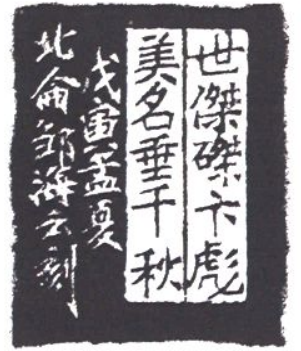 世傑磔卞彪
美名垂千秋
戊寅孟夏
北侖邹海云刻